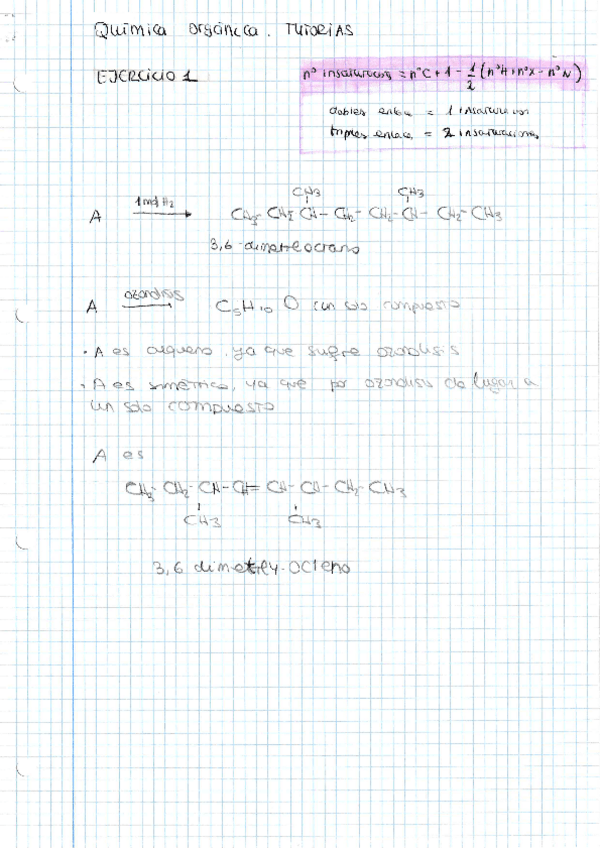 Química orgánica. TUTORIAS
EJERCICIO 1
nº insaturacions = nºC + 1 - 1/2 (nºH + nºX - nºN)
dobles enlace = 1 insaturacion
triples enlace = 2 insaturaciones
A 1 mol H2 →
CH3 CH3
CH3- CH2- CH- CH2- CH2- CH- CH2- CH3
3,6-dimetiloctano
A ozonolisis → C5H10 O un solo compuesto
· A es alqueno, ya que sufre ozonolisis
· A es simétrico, ya que por ozonolisis da lugar a
un solo compuesto
A es
CH3- CH2- CH- CH= CH- CH- CH2- CH3
CH3 CH3
3,6 dimetil-4-octeno